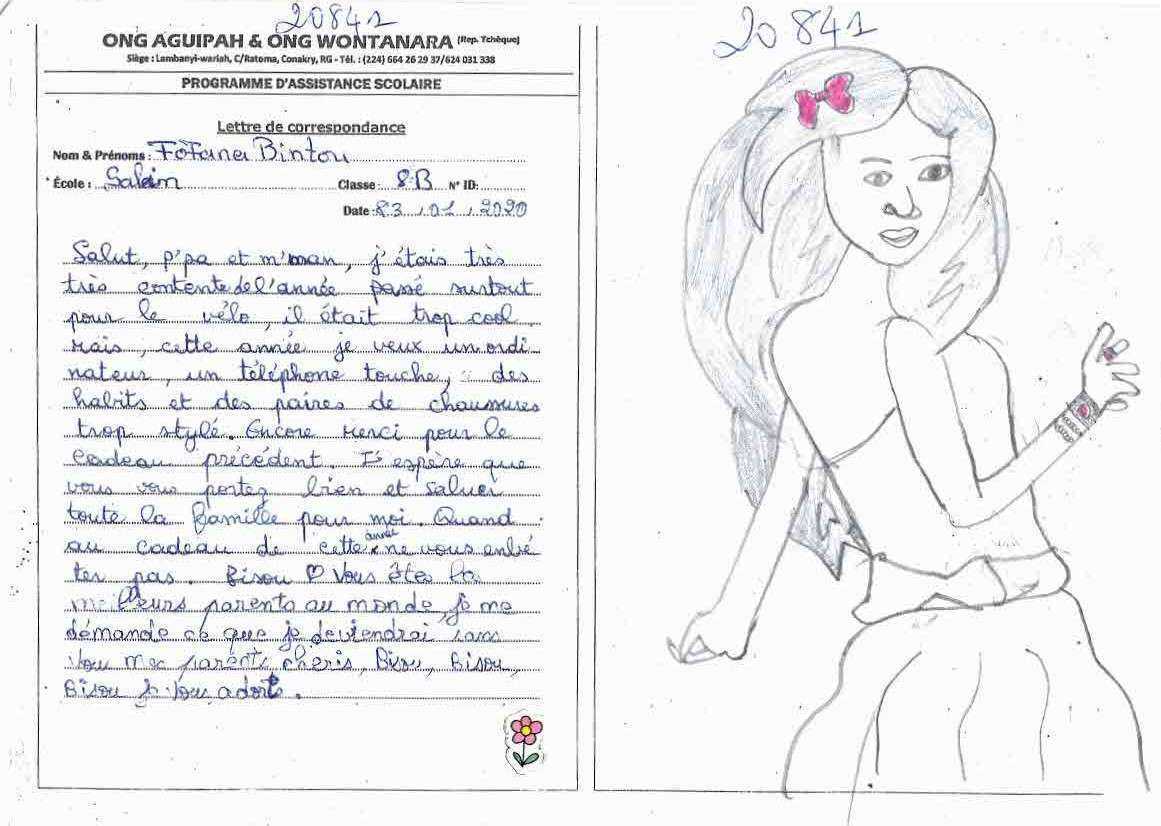 20841
ONG AGUIPAH & ONG WONTANARA (Rep. Tchèque)
Siège : Lambanyi-wariah, C/Ratoma, Conakry, RG - Tél. : (224) 664 26 29 37/624 031 338
PROGRAMME D'ASSISTANCE SCOLAIRE
Lettre de correspondance
Nom & Prénoms : Fofana Bintou
École : Classe : 8.B N° ID:
Date : 03 / 01 / 2020
Salut, p'pa et m'man, j'étais très
très contente de l'année passé surtout
pour le vélo, il était trop cool
Mais, cette année je veux un ordi
nateur, un téléphone touche, des
habits et des paires de chaussures
trop stylé. Encore Merci pour le
Cadeau précédent. J'espère que
vous vous portez bien et saluer
toute la famille pour moi. Quand
au cadeau de cette année ne vous enbé
ter pas. Bisou ♡ Vous êtes les
meilleurs parents au monde, je me
démande ce que je deviendrai sans
Vou mes parents chéris, Bisou, Bisou,
Bisou je vou adore.
20841